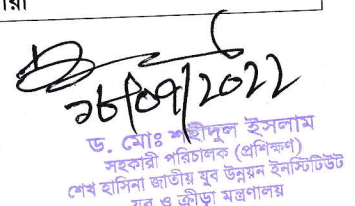 রা
১৮/০৭/2022
ড. মোঃ শহীদুল ইসলাম
সহকারী পরিচালক (প্রশিক্ষণ)
শেখ হাসিনা জাতীয় যুব উন্নয়ন ইনস্টিটিউট
যুব ও ক্রীড়া মন্ত্রণালয়